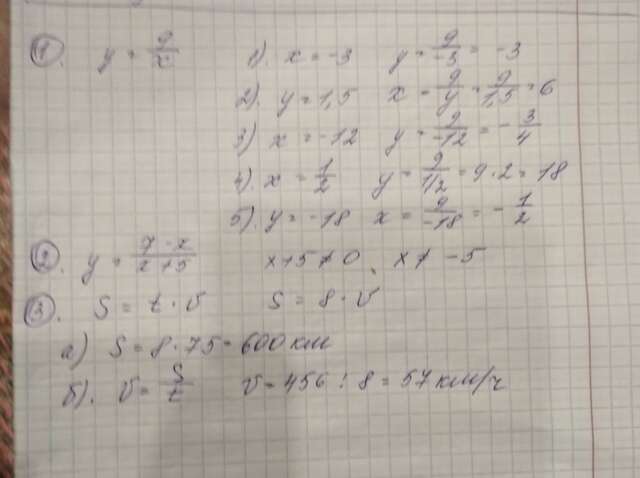 1. y = 9/x 1). x = -3 y = 9/-3 = -3
2). y = 1,5 x = 9/y = 9/1,5 = 6
3) x = -12 y = 9/-12 = -3/4
4). x = 1/2 y = 9/1/2 = 9·2 = 18
5). y = -18 x = 9/-18 = -1/2
2. y = 7-x/x+5 x+5≠0, x≠-5
3. S = t·v S = 8·v
а) S = 8·75 = 600 км
б). v = S/t v = 456 : 8 = 57 км/ч